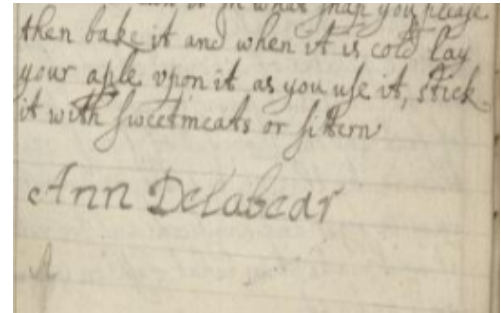 it in what shap you please
then bake it and when it is cold lay
your aple vpon it as you use it, stick
it with sweetmeats or sittern
Ann Delabear
A